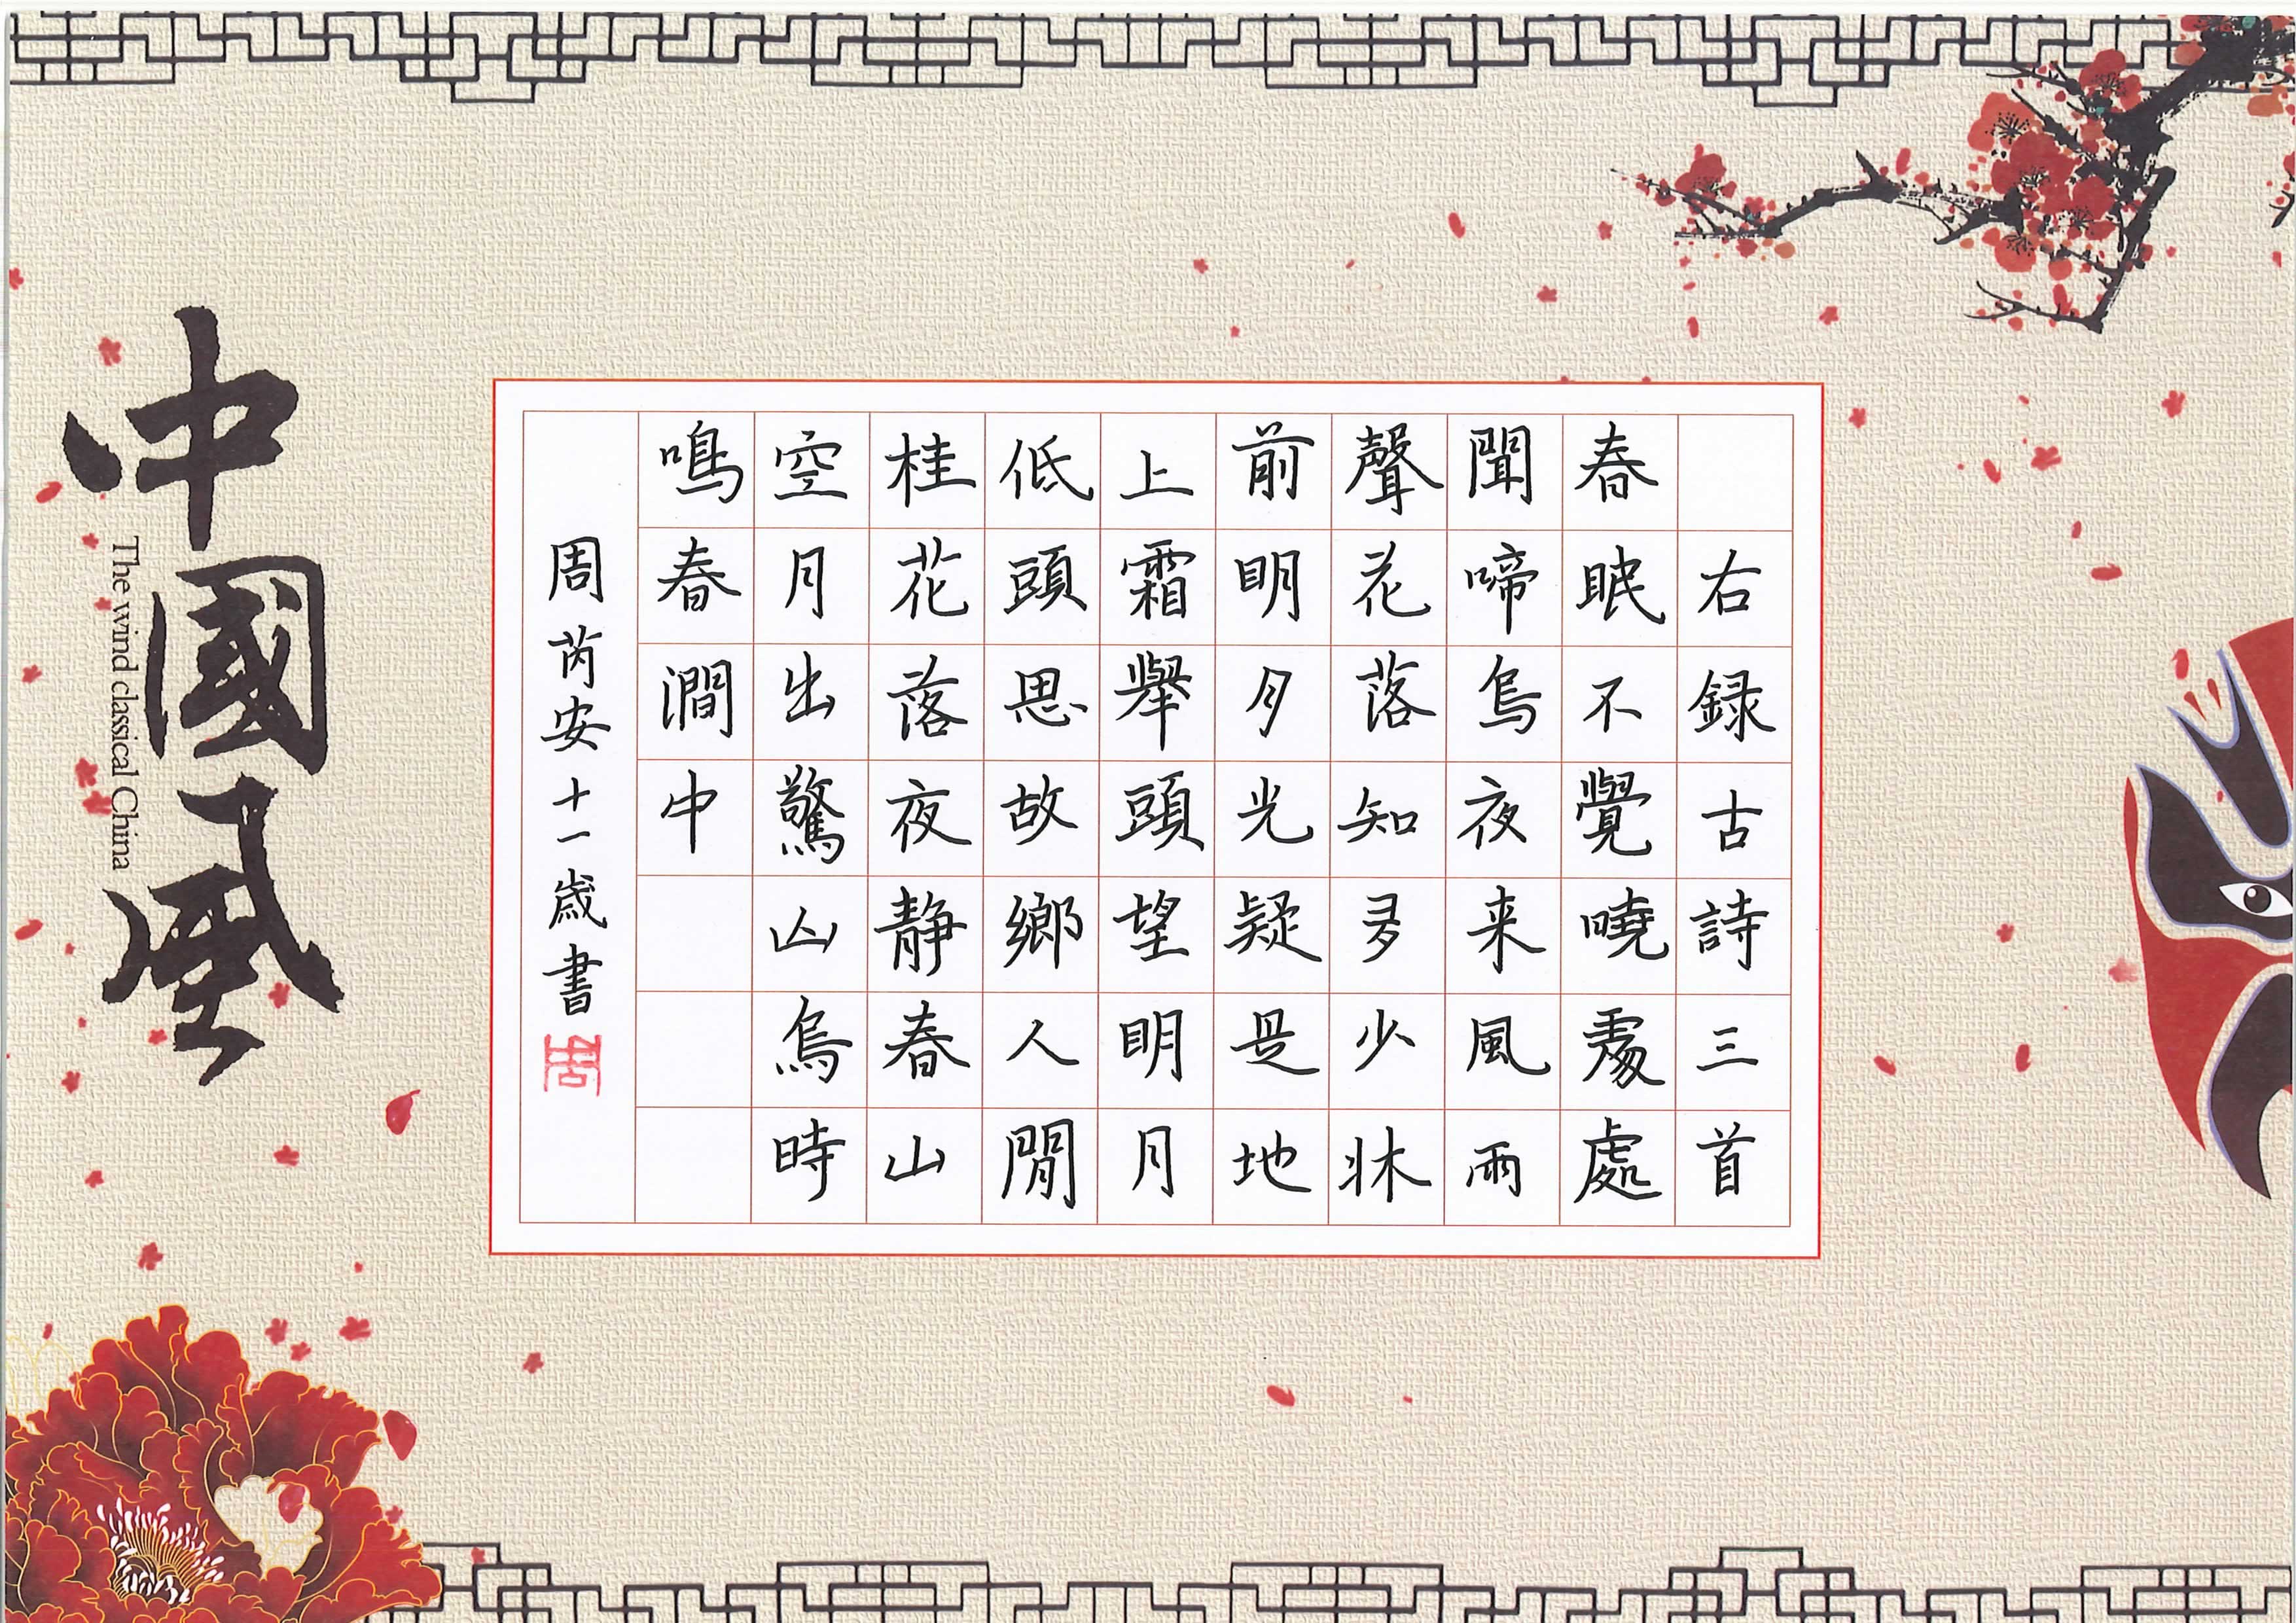 右録古詩三首
春眠不覺曉處處
聞啼鳥夜来風雨
聲花落知多少牀
前明月光疑是地
上霜舉頭望明月
低頭思故鄉人閒
桂花落夜静春山
空月出驚山鳥時
鳴春澗中
周芮安十一歲書
周
中國風
The wind classical China